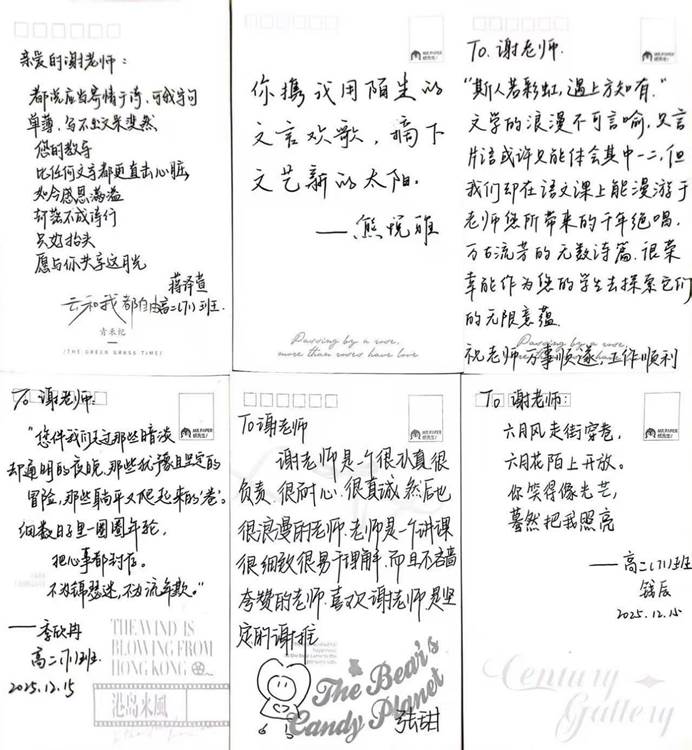 MR.PAPER
纸先生!
亲爱的谢老师:
都说应当寄情于诗,可我字句
单薄,写不出文采斐然
您的教导
比任何文字都更直击心脏
如今感恩满溢
却登不成诗行
只好抬头
愿与你共享这月光
蒋泽萱
高二(71)班
云和我都自由
青春忆
(THE GREEN GRASS TIME)
MR.PAPER
纸先生!
你携我用陌生的
文言欢歌,摘下
文艺新的太阳.
——熊悦雅
Passing by a rose,
more than roses have love
MR.PAPER
纸先生!
To.谢老师.
“斯人若彩虹,遇上方知有.”
文学的浪漫不可言喻,只言
片语或许只能体会其中一二,但
我们却在语文课上能漫游于
老师您所带来的千年绝唱,
万古流芳的无数诗篇.很荣
幸能作为您的学生去探索它们
的无限意蕴.
祝老师万事顺遂,工作顺利
Passing by a rose,
MR.PAPER
纸先生!
To 谢老师.
“您伴我们走过那些暗淡
却通明的夜晚,那些犹豫且坚定的
冒险,那些躺平又爬起来的‘卷’.
细数日子里一圈圈年轮,
把心事都封存.
不为锦瑟迷,不为流年欺.”
——李欣冉
高二(71)班
2025.12.15
THE WIND IS
BLOWING FROM
HONG KONG
港岛来风
MR.PAPER
纸先生!
To谢老师
谢老师是一个很认真很
负责、很耐心、很真诚然后也
很浪漫的老师.老师是一个讲课
很细致很易于理解,而且不吝啬
夸赞的老师.喜欢谢老师是坚
定的谢推
The Bear's
Candy Planet
张甜
MR.PAPER
纸先生!
To 谢老师:
六月风走街穿巷,
六月花陌上开放。
你笑得像光芒,
蓦然把我照亮
——高二(71)班
钱辰
2025.12.15
Century
Gallery